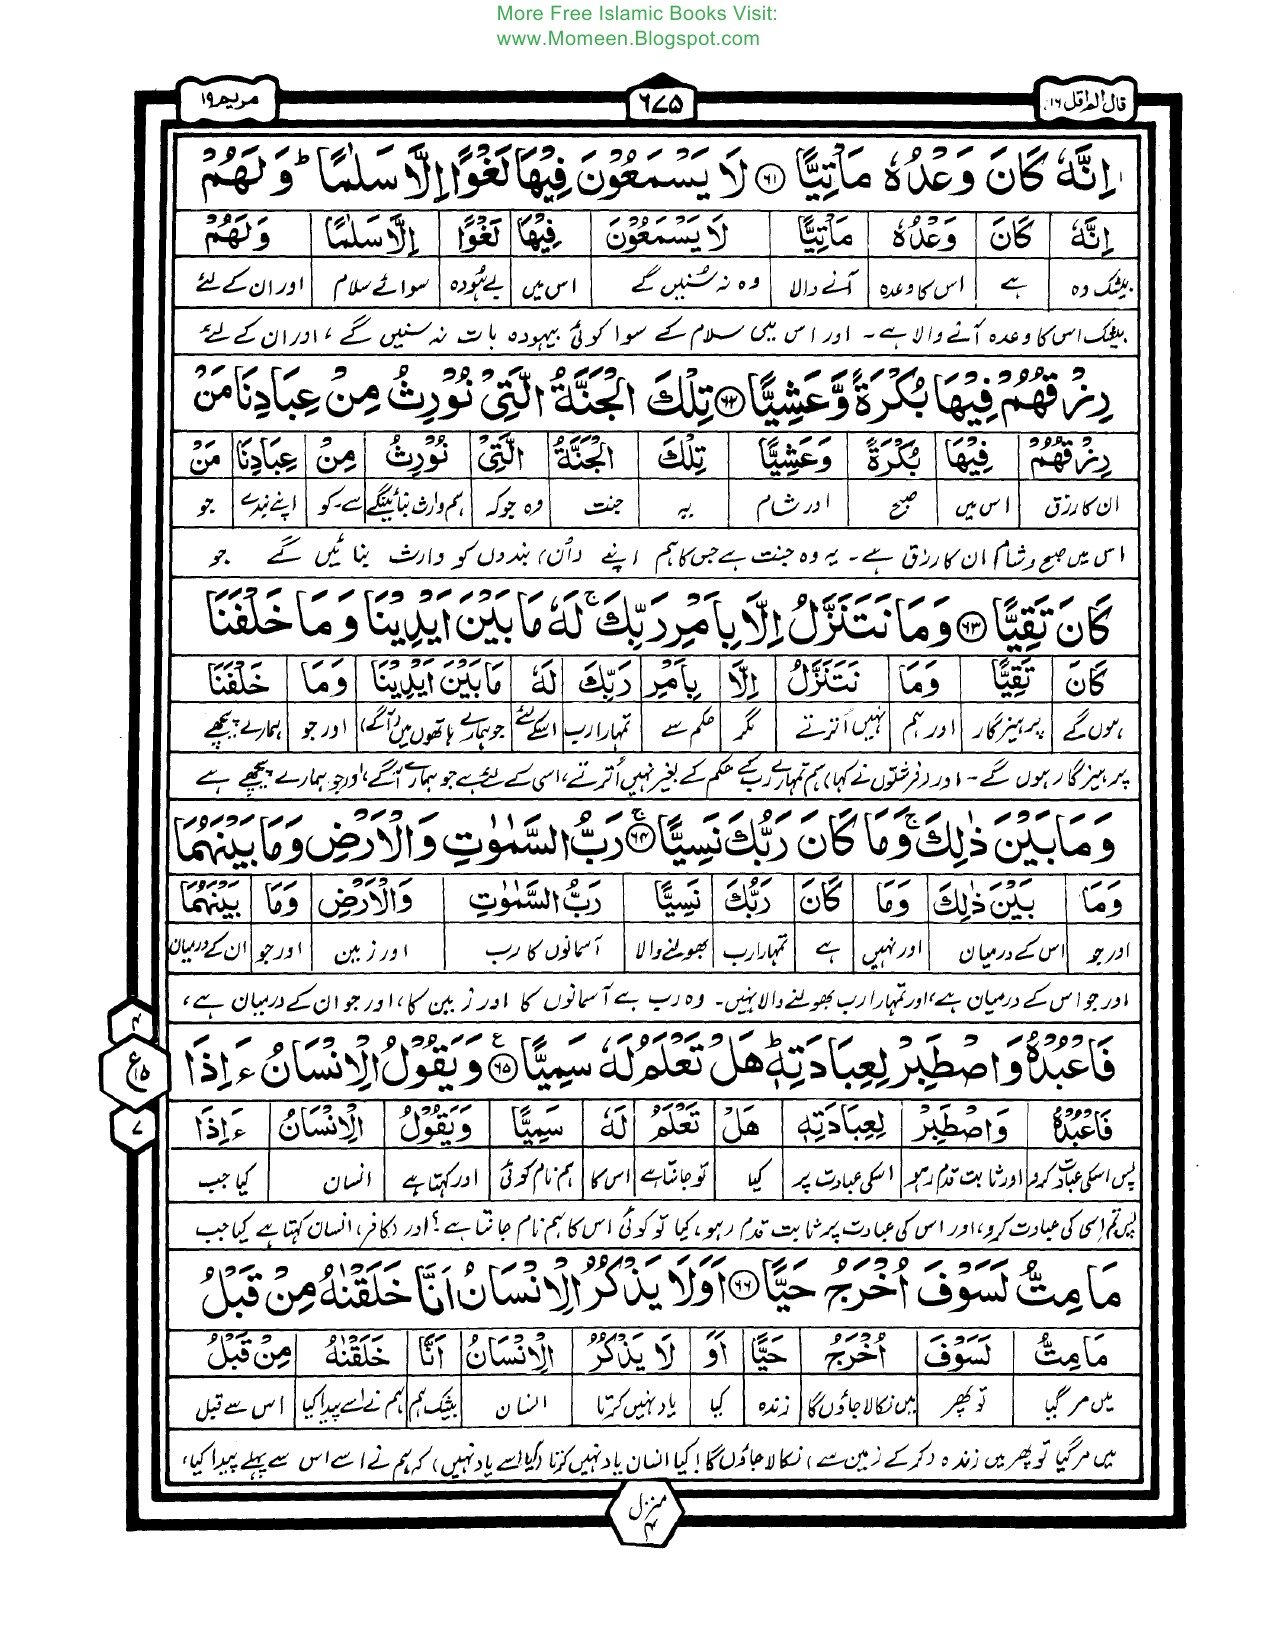 More Free Islamic Books Visit:
www.Momeen.Blogspot.com
قال الم اقل ١٦
٦٧٥
مریم ١٩
اِنَّهٗ كَانَ وَعْدُهٗ مَاْتِيًّا ۝٦١ لَا يَسْمَعُوْنَ فِيْهَا لَغْوًا اِلَّا سَلٰمًا ؕ وَلَهُمْ
اِنَّهٗ كَانَ وَعْدُهٗ مَاْتِيًّا لَا يَسْمَعُوْنَ فِيْهَا لَغْوًا اِلَّا سَلٰمًا وَلَهُمْ
بیشک وہ ہے اس کا وعدہ آنے والا وہ نہ سنیں گے اس میں بے ہودہ سوائے سلام اور ان کے لئے
بیشک اس کا وعدہ آنے والا ہے۔ اور اس میں سلام کے سوا کوئی بیہودہ بات نہ سنیں گے، اور ان کے لئے
رِزْقُهُمْ فِيْهَا بُكْرَةً وَّعَشِيًّا ۝٦٢ تِلْكَ الْجَنَّةُ الَّتِيْ نُوْرِثُ مِنْ عِبَادِنَا مَنْ
رِزْقُهُمْ فِيْهَا بُكْرَةً وَعَشِيًّا تِلْكَ الْجَنَّةُ الَّتِيْ نُوْرِثُ مِنْ عِبَادِنَا مَنْ
ان کا رزق اس میں صبح اور شام یہ جنت وہ جو کہ ہم وارث بنائینگے سے۔ کو اپنے بندے جو
اس میں صبح و شام ان کا رزق ہے۔ یہ وہ جنت ہے جس کا ہم اپنے (ان) بندوں کو وارث بنائیں گے جو
كَانَ تَقِيًّا ۝٦٣ وَمَا نَتَنَزَّلُ اِلَّا بِاَمْرِ رَبِّكَ ۚ لَهٗ مَا بَيْنَ اَيْدِيْنَا وَمَا خَلْفَنَا
كَانَ تَقِيًّا وَمَا نَتَنَزَّلُ اِلَّا بِاَمْرِ رَبِّكَ لَهٗ مَا بَيْنَ اَيْدِيْنَا وَمَا خَلْفَنَا
ہوں گے پرہیزگار اور ہم نہیں اُترتے مگر حکم سے تمہارا رب اسکے لئے جو ہمارے ہاتھوں میں (آگے) اور جو ہمارے پیچھے
پرہیزگار ہوں گے۔ اور (فرشتوں نے کہا) ہم تمہارے رب کے حکم کے بغیر نہیں اُترتے، اسی کے لئے ہے جو ہمارے آگے، اور جو ہمارے پیچھے ہے
وَمَا بَيْنَ ذٰلِكَ ۚ وَمَا كَانَ رَبُّكَ نَسِيًّا ۝٦٤ ۚ رَبُّ السَّمٰوٰتِ وَالْاَرْضِ وَمَا بَيْنَهُمَا
وَمَا بَيْنَ ذٰلِكَ وَمَا كَانَ رَبُّكَ نَسِيًّا رَبُّ السَّمٰوٰتِ وَالْاَرْضِ وَمَا بَيْنَهُمَا
اور جو اس کے درمیان اور نہیں ہے تمہارا رب بھولنے والا آسمانوں کا رب اور زمین اور جو ان کے درمیان
اور جو اس کے درمیان ہے، اور تمہارا رب بھولنے والا نہیں۔ وہ رب ہے آسمانوں کا اور زمین کا، اور جو ان کے درمیان ہے،
٤
ع ١٥
٧
فَاعْبُدْهُ وَاصْطَبِرْ لِعِبَادَتِهٖ ؕ هَلْ تَعْلَمُ لَهٗ سَمِيًّا ۝٦٥ ع وَيَقُوْلُ الْاِنْسَانُ ءَاِذَا
فَاعْبُدْهُ وَاصْطَبِرْ لِعِبَادَتِهٖ هَلْ تَعْلَمُ لَهٗ سَمِيًّا وَيَقُوْلُ الْاِنْسَانُ ءَاِذَا
پس اسکی عبادت کرو اور ثابت قدم رہو اسکی عبادت پر کیا تو جانتا ہے اس کا ہم نام کوئی اور کہتا ہے انسان کیا جب
پس تم اسی کی عبادت کرو، اور اس کی عبادت پر ثابت قدم رہو، کیا تو کوئی اس کا ہم نام جانتا ہے؟ اور (کافر) انسان کہتا ہے کیا جب
مَا مِتُّ لَسَوْفَ اُخْرَجُ حَيًّا ۝٦٦ اَوَلَا يَذْكُرُ الْاِنْسَانُ اَنَّا خَلَقْنٰهُ مِنْ قَبْلُ
مَا مِتُّ لَسَوْفَ اُخْرَجُ حَيًّا اَوَ لَا يَذْكُرُ الْاِنْسَانُ اَنَّا خَلَقْنٰهُ مِنْ قَبْلُ
میں مر گیا تو پھر میں نکالا جاؤں گا زندہ کیا یاد نہیں کرتا انسان بیشک ہم ہم نے اسے پیدا کیا اس سے قبل
میں مر گیا تو پھر میں زندہ (کر کے زمین سے) نکالا جاؤں گا! کیا انسان یاد نہیں کرتا (کیا اسے یاد نہیں) کہ ہم نے اسے اس سے پہلے پیدا کیا،
منزل ٤